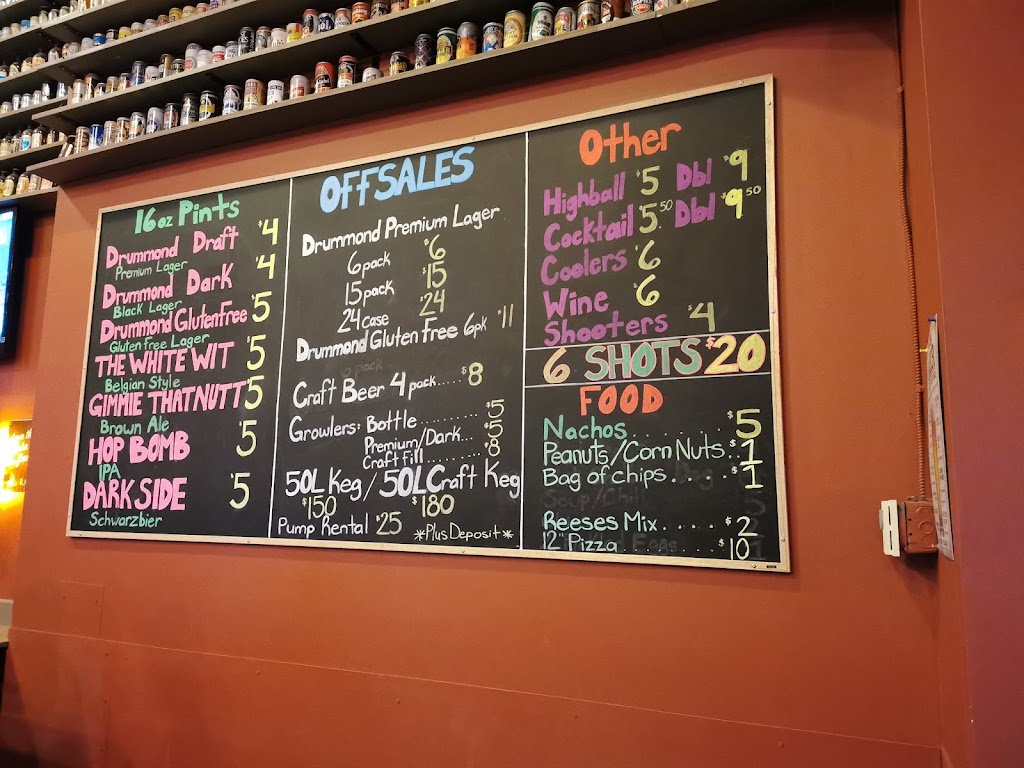 16oz Pints
Drummond Draft $4
Premium Lager
Drummond Dark $4
Black Lager
Drummond Gluten Free $5
Gluten free Lager
THE WHITE WIT $5
Belgian Style
GIMMIE THAT NUTT $5
Brown Ale
HOP BOMB $5
IPA
DARK SIDE $5
Schwarzbier
OFFSALES
Drummond Premium Lager
6 pack $6
15 pack $15
24 case $24
Drummond Gluten Free 6pk $11
Craft Beer 4 pack..... $8
Growlers: Bottle.......... $5
Premium/Dark... $5
Craft fill.......... $8
50L Keg / 50L Craft Keg
$150 $180
Pump Rental $25 *Plus Deposit*
Other
Highball $5 Dbl $9
Cocktail $5.50 Dbl $9.50
Coolers $6
Wine $6
Shooters $4
6 SHOTS $20
FOOD
Nachos.......... $5
Peanuts/Corn Nuts.. $1
Bag of chips..... $1
Soup/Chili
Reeses Mix..... $2
12" Pizza.......... $10
Eggs